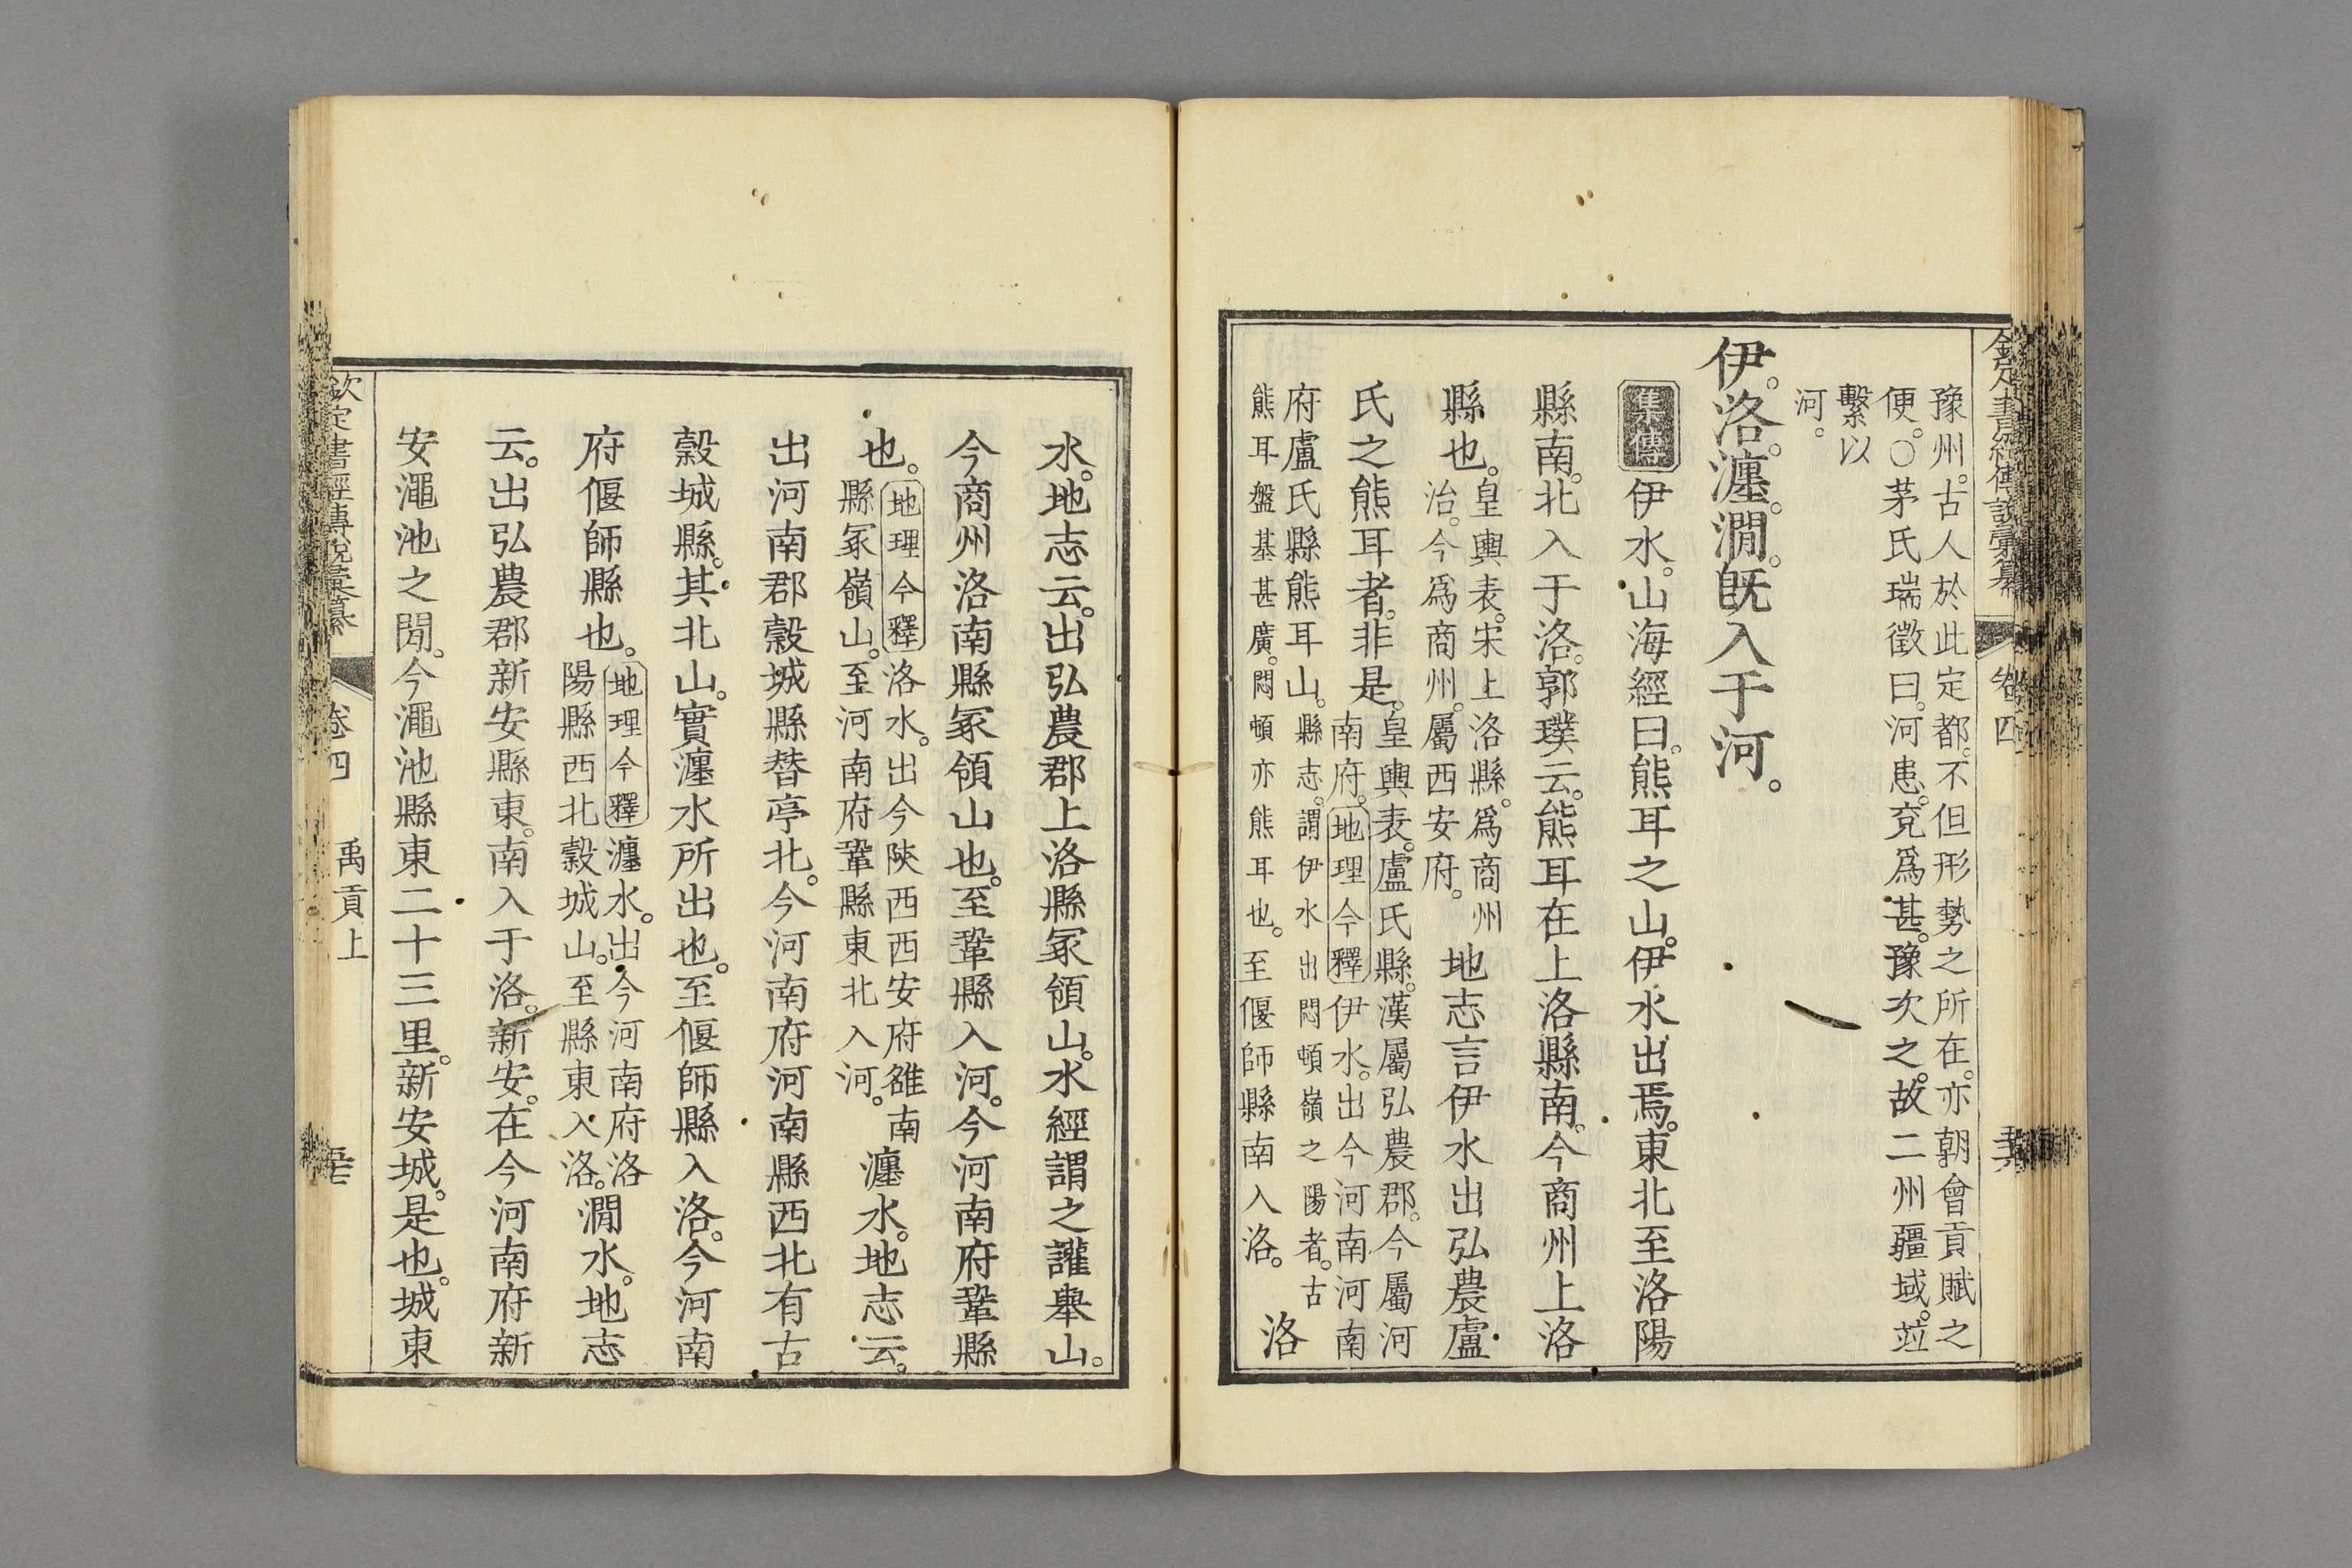 豫州。古人於此定都。不但形勢之所在。亦朝會貢賦之
便。○茅氏瑞徵曰。河患。兗爲甚。豫次之。故二州疆域。竝
繫以
河。
伊。洛。瀍。澗。旣入于河。
集傳伊水。山海經曰。熊耳之山。伊水出焉。東北至洛陽
縣南。北入于洛。郭璞云。熊耳在上洛縣南。今商州上洛
縣也。
皇輿表。宋上洛縣。爲商州
治。今爲商州。屬西安府。
地志言伊水出弘農盧
氏之熊耳者。非是。
皇輿表。盧氏縣。漢屬弘農郡。今屬河
南府。地理今釋伊水。出今河南河南
府盧氏縣熊耳山。縣志。謂伊水出悶頓嶺之陽者。古
熊耳盤基甚廣。悶頓亦熊耳也。至偃師縣南入洛。
洛
水。地志云。出弘農郡上洛縣冢領山。水經謂之讙舉山。
今商州洛南縣冢領山也。至鞏縣入河。今河南府鞏縣
也。
地理今釋洛水。出今陝西西安府雒南
縣冢嶺山。至河南府鞏縣東北入河。
瀍水。地志云。
出河南郡穀城縣替亭北。今河南府河南縣西北有古
穀城縣。其北山。實瀍水所出也。至偃師縣入洛。今河南
府偃師縣也。
地理今釋瀍水。出今河南府洛
陽縣西北穀城山。至縣東入洛。
澗水。地志
云。出弘農郡新安縣東。南入于洛。新安。在今河南府新
安澠池之閒。今澠池縣東二十三里。新安城。是也。城東
欽定書經傳說彙纂
卷四
禹貢上